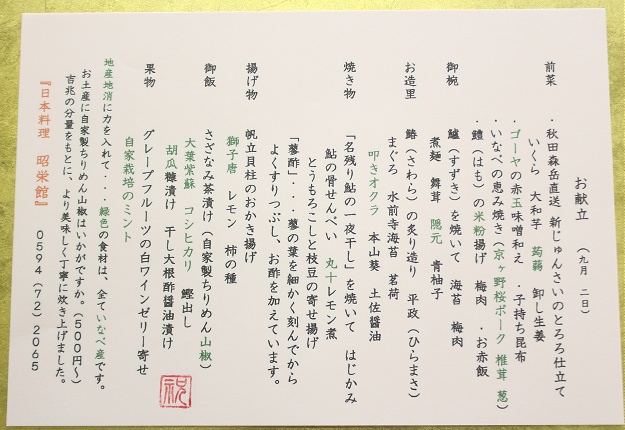 お献立　（九月　二日）
前菜　・秋田森岳直送 新じゅんさいのとろろ仕立て
いくら　大和芋　蒟蒻　卸し生姜
・ゴーヤの赤玉味噌和え　・子持ち昆布
・いなべの恵み焼き（京ヶ野桜ポーク 椎茸 葱）
・鱧（はも）の米粉揚げ　梅肉　・お赤飯
御椀　鱸（すずき）を焼いて　海苔　梅肉
煮麺　舞茸　隠元　青柚子
お造里　鰆（さわら）の炙り造り　平政（ひらまさ）
まぐろ　水前寺海苔　茗荷
叩きオクラ　本山葵　土佐醤油
焼き物　「名残り鮎の一夜干し」を焼いて　はじかみ
鮎の骨せんべい　丸十レモン煮
とうもろこしと枝豆の寄せ揚げ
「蓼酢」・・・蓼の葉を細かく刻んでから
よくすりつぶし、お酢を加えています。
揚げ物　帆立貝柱のおかき揚げ
獅子唐　レモン　柿の種
御飯　さざなみ茶漬け（自家製ちりめん山椒）
大葉紫蘇　コシヒカリ　鰹出し
胡瓜糠漬け　干し大根酢醤油漬け
果物　グレープフルーツの白ワインゼリー寄せ
自家栽培のミント
地産地消に力を入れて・・・緑色の食材は、全ていなべ産です。
お土産に自家製ちりめん山椒はいかがですか。（５００円～）
吉兆の分量をもとに、より美味しく丁寧に炊き上げました。
『日本料理　昭栄館』　０５９４（７２）２０６５
祝